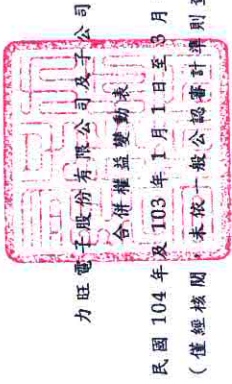 力旺電子股份有限公司及子公司
合併權益變動表
民國 104 年及 103 年 1 月 1 日至 3 月
（僅經核閱，未依一般公認審計準則